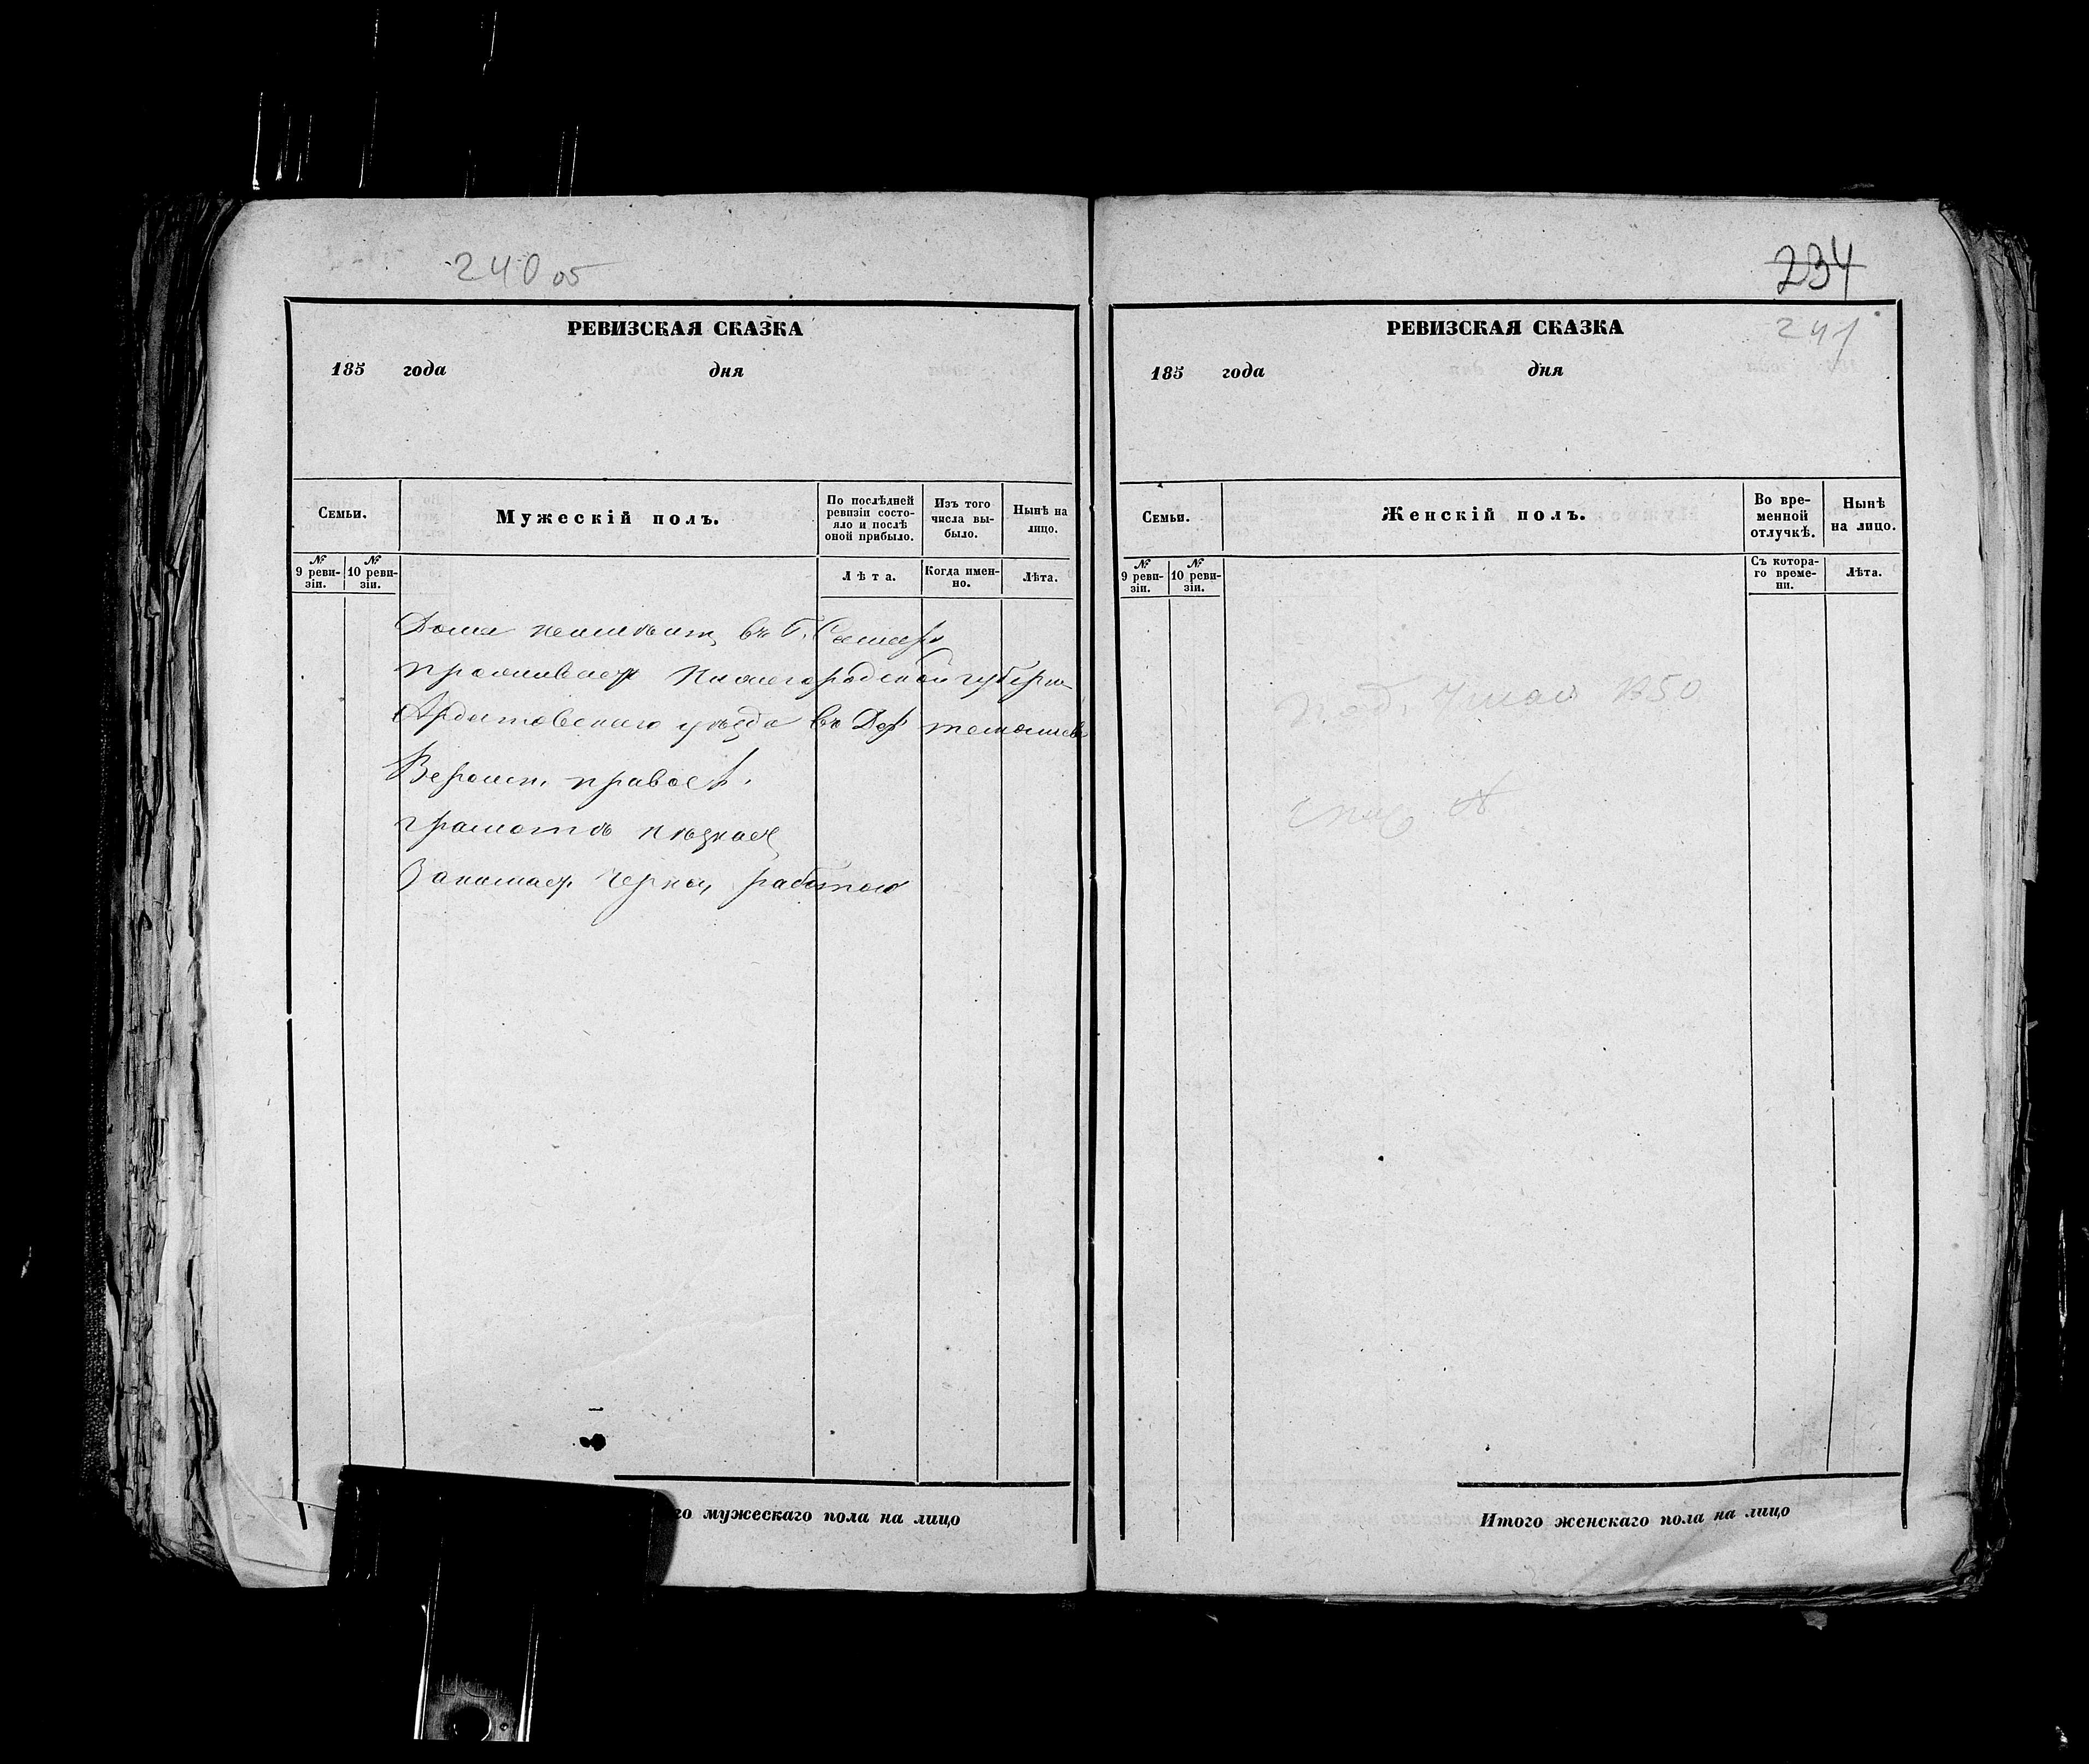 240 об
РЕВИЗСКАЯ СКАЗКА
185 года дня
Семьи.
Мужескій полъ.
По послѣдней ревизіи состояло и послѣ оной прибыло.
Изъ того числа выбыло.
Нынѣ на лицо.
№ 9 ревизіи.
№ 10 ревизіи.
Лѣта.
Когда именно.
Лѣта.
Дома неимѣит, въ Г. Самар
проживает Нижегородской губерни
Ардатовскаго уѣзда въ Дер
Вероисп. правосл.
грамотѣ незнает
Занимает. черно, работою
го мужескаго пола на лицо
234
241
РЕВИЗСКАЯ СКАЗКА
185 года дня
Семьи.
Женскій полъ.
Во временной отлучкѣ.
Нынѣ на лицо.
№ 9 ревизіи.
№ 10 ревизіи.
Съ котораго времени.
Лѣта.
1850
Итого женскаго пола на лицо